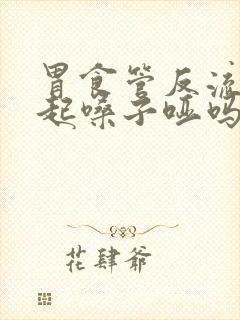 胃食管反流
起嗓子哑吗
花肆爷